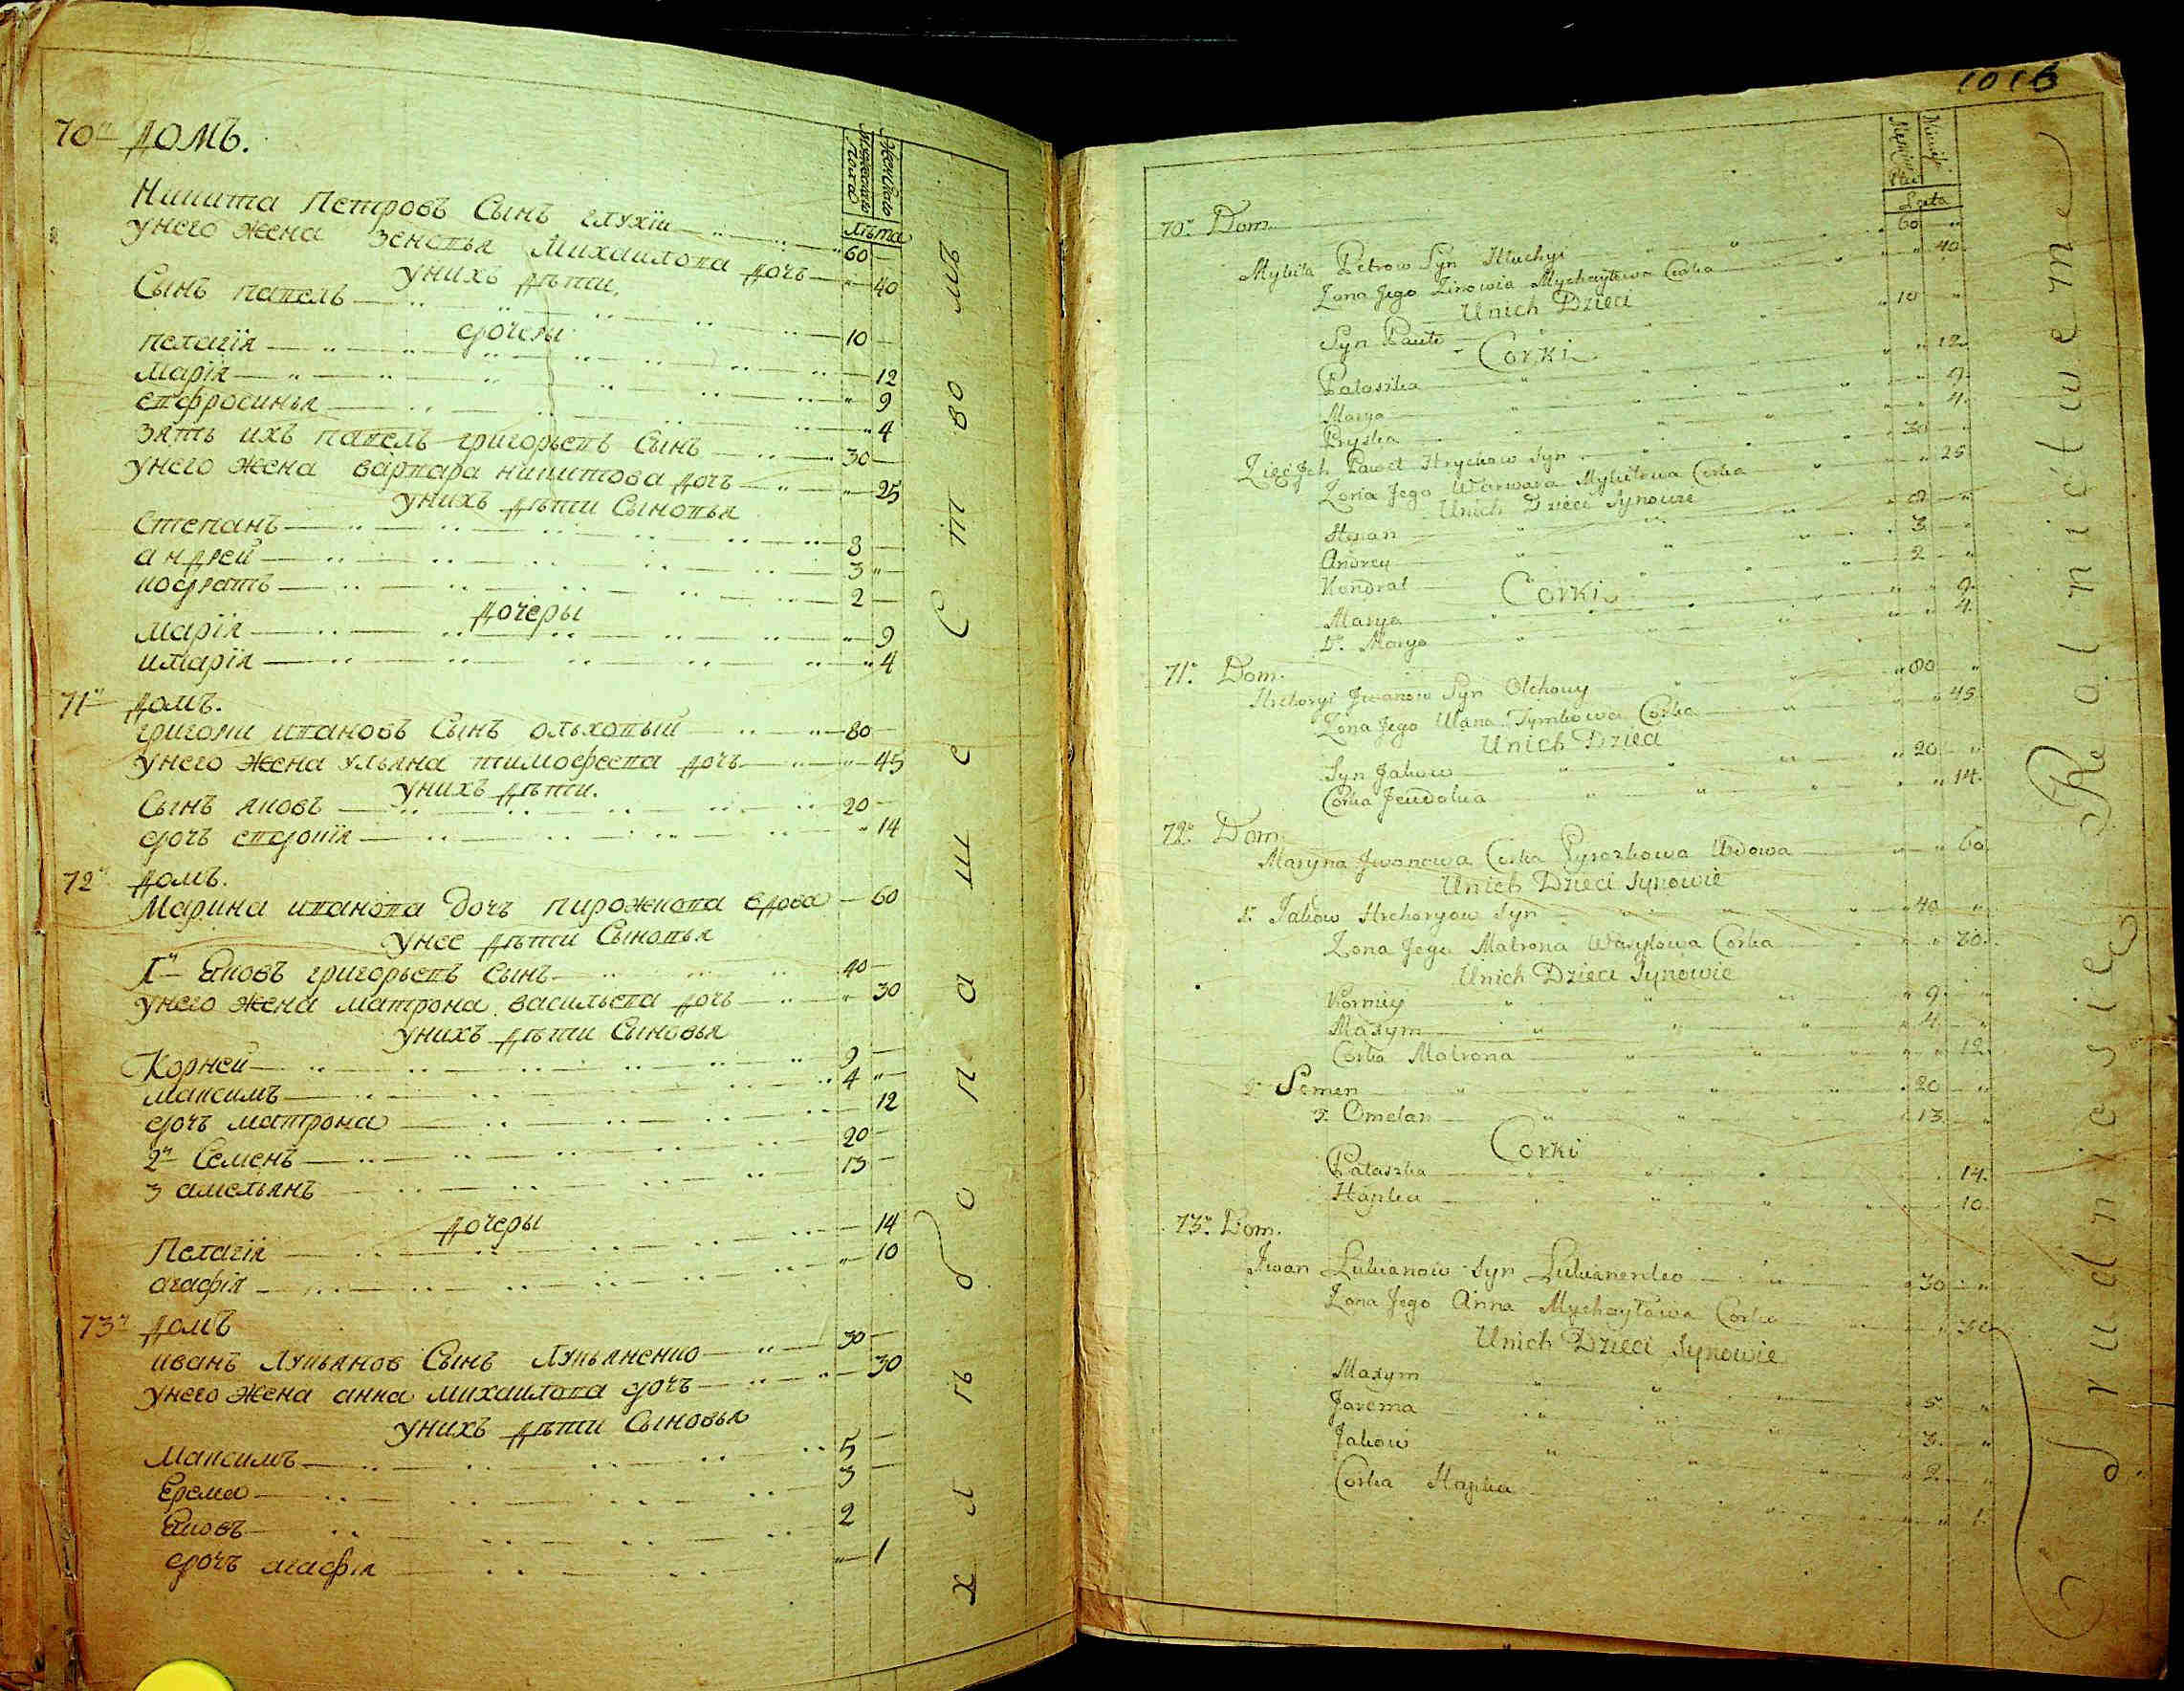 70й домъ.
Мужеска Пола
Женскаго
лѣта
Никита Петровъ Сынъ глухiи 60
унего жена Зеновья Михаилова дочь 40
унихъ дѣти,
Сынъ павелъ 10
дочери
пелагiя 12
марiя 9
евфросинья 4
зять ихъ павелъ григорьевъ Сынъ 30
унего жена варвара никитова дочь 25
унихъ дѣти Сыновья
Степанъ 8
андрей 3
кодратъ 2
дочеры
марiя 9
имарiя 4
71й домъ.
григории ивановъ Сынъ ольховый 80
унего жена ульяна тимофеева дочь 45
унихъ дѣти.
Сынъ яковъ 20
дочь евдокiя 14
72й домъ.
Марина иванова дочь пирожкова вдова 60
унее дѣти Сыновья
1й Яковъ григорьевъ Сынъ 40
унего жена матрона васильева дочь 30
унихъ дѣти Сыновья
Корней 9
максимъ 4
дочь матрона 12
2й Семенъ 20
3 амельянъ 13
дочеры
Пелагiя 14
агафiя 10
73й домъ
иванъ Лукьянов Сынъ Лукьяненко 30
унего жена анна михаилова дочь 30
унихъ дѣти Сыновья
максимъ 5
Ерема 3
Яковъ 2
дочь агафiя 1
хлѣбопашествомъ
1016
Lata
70. Dom.
Mykita Petrow Syn Hłuchyi 60
Zona Jego Zinowia Mychayłowa Corka 40
Unich Dzieci
Syn Pawło 10
Corki
Pałaszka 12
Marya 9
Pryska 4
Zięć Jch Paweł Hrychow Syn 30
Zona Jego Warwara Mykitowa Corka 25
Unich Dzieci Synowie
Stepan 8
Andrey 3
Kondrat 2
Corki
Marya 9
D. Marya 4
71. Dom.
Hrehoryi Jwanow Syn Olchowy 80
Zona Jego Ulana Tymkowa Corka 45
Unich Dzieci
Syn Jakow 20
Corka Jewdokia 14
72. Dom.
Maryna Jwanowa Corka Pyrozkowa Wdowa 60
Unich Dzieci Synowie
1. Jakow Hrehoryow Syn 40
Zona Jego Matrona Wasylowa Corka 30
Unich Dzieci Synowie
Korniey 9
Maxym 4
Corka Matrona 12
2. Semen 20
3. Omelan 13
Corki
Pałaszka 14
Hapka 10
73. Dom.
Jwan Lukianow Syn Lukianenko 30
Zona Jego Anna Mychayłowa Corka 30
Unich Dzieci Synowie
Maxym 5
Jarema 3
Jakow 2
Corka Hapka 1
Trudnie się Rolnictwem